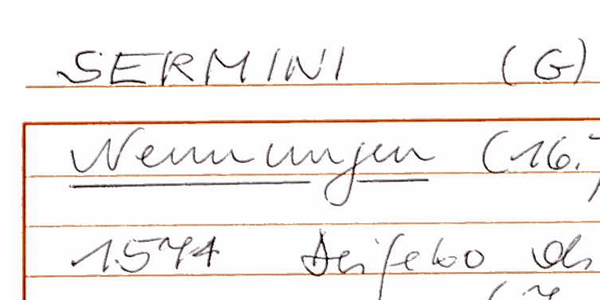 SERMINI (G)
Nennungen (16.
1574 Deifebo